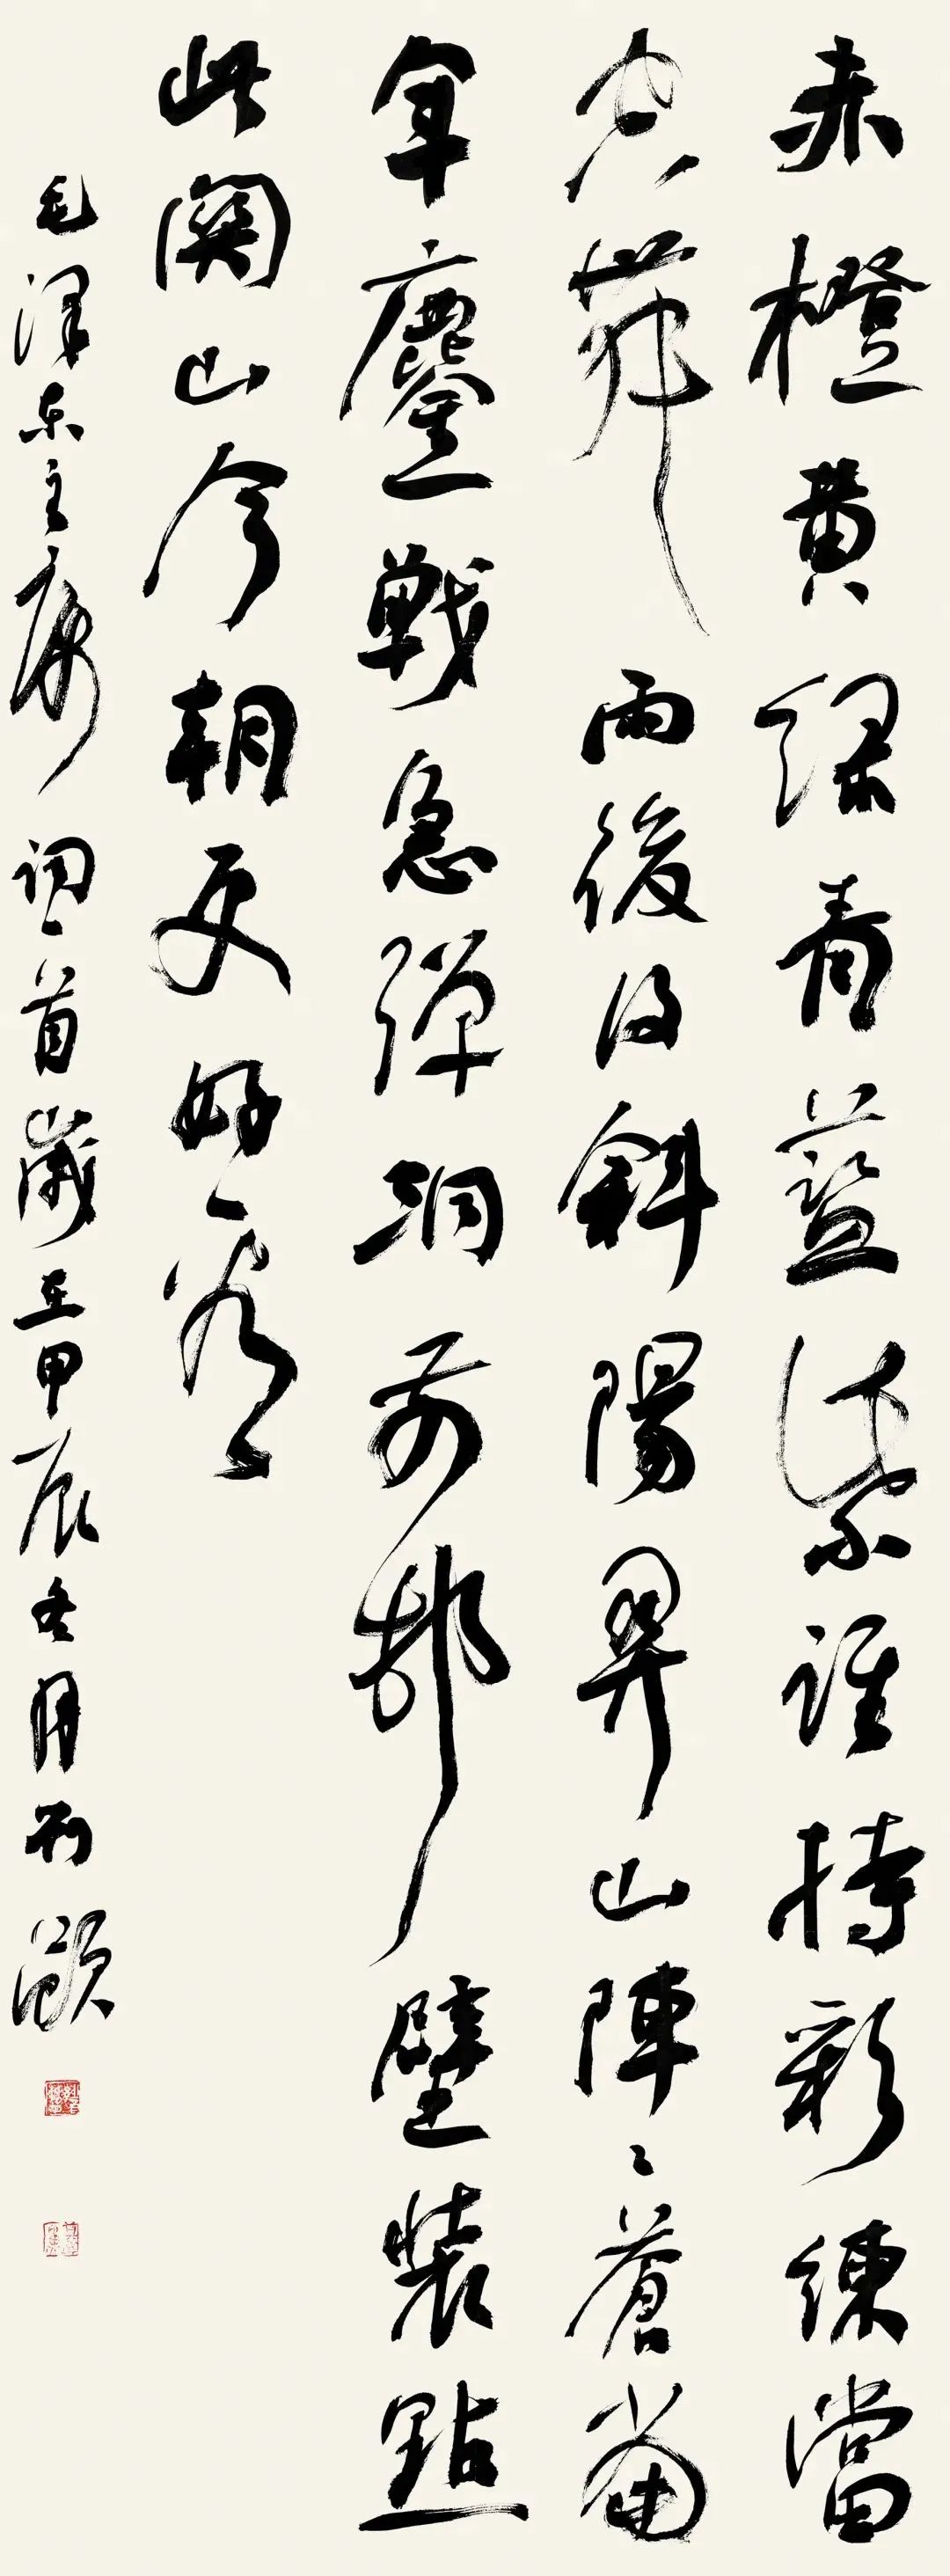 赤橙黃綠青藍紫誰持彩練當
空舞雨後復斜陽關山陣〻蒼當
年鏖戰急彈洞前邨壁裝點
此關山今朝更好看
毛澤東主席詞一首歲在甲辰冬月